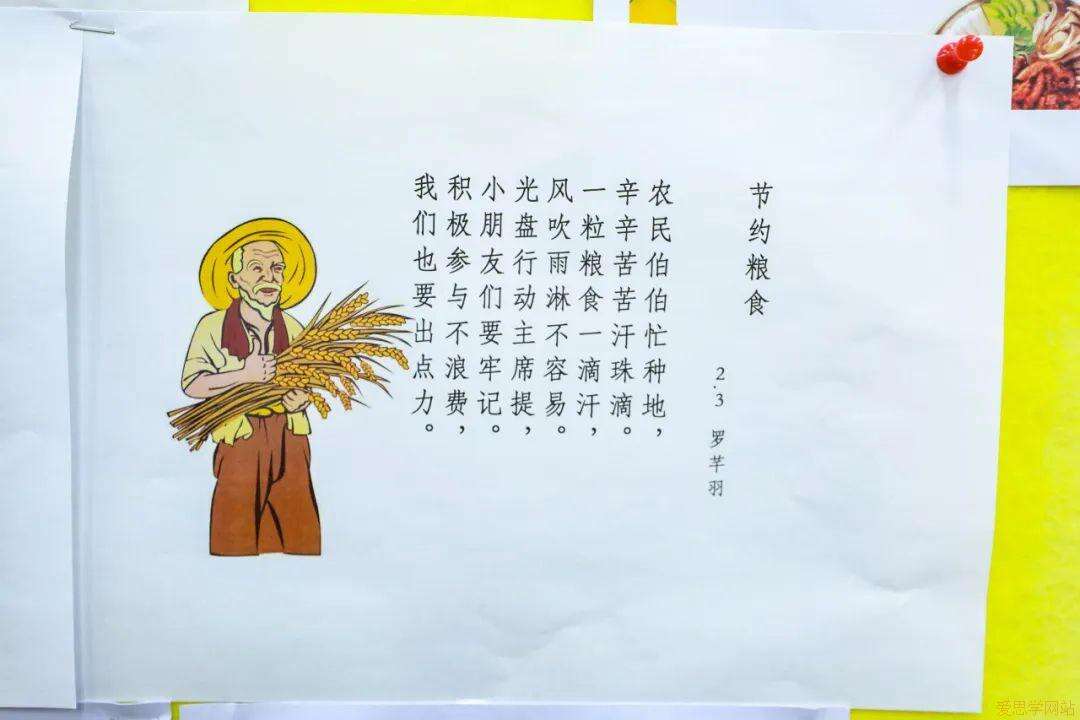 节约粮食
2.3 罗芊羽
农民伯伯忙种地，
辛辛苦苦汗珠滴。
一粒粮食一滴汗，
风吹雨淋不容易。
光盘行动主席提，
小朋友们要牢记。
积极参与不浪费，
我们也要出点力。
爱思学网站